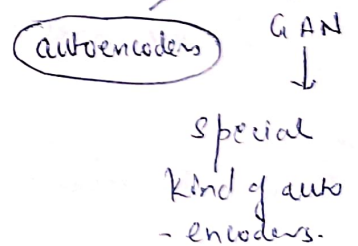 autoencoders
GAN
special
kind of auto
- encoders.